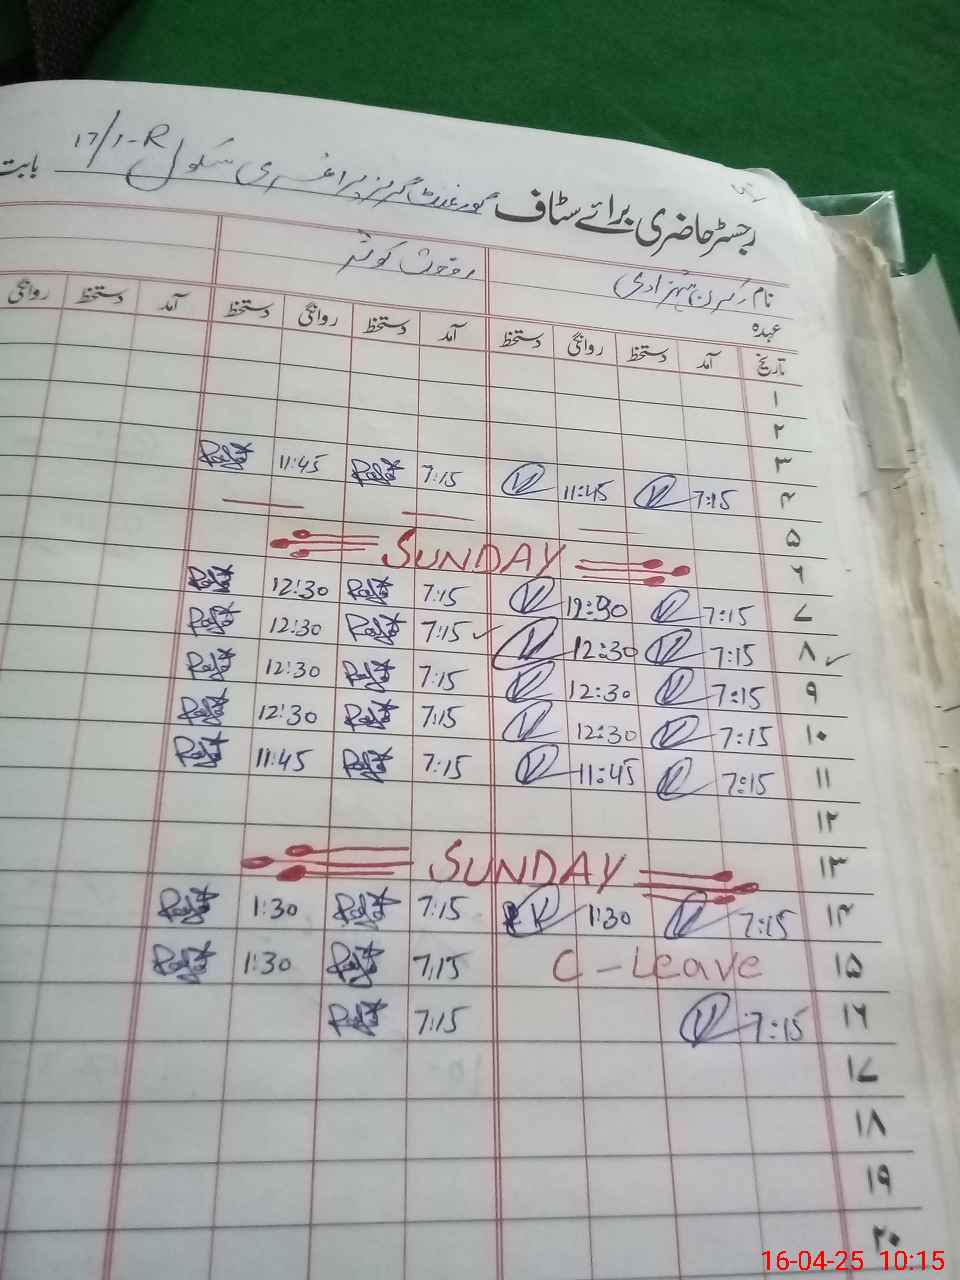 17/1-R
رجسٹر حاضری برائے سٹاف گورنمنٹ گرلز پرائمری سکول بابت
نام کرن شہزادی
عہدہ
تاریخ آمد دستخط روانگی دستخط آمد دستخط روانگی دستخط آمد دستخط روانگی
۱
۲
۳
۴ 7:15 11:45 7:15 11:45
۵
۶ SUNDAY
۷ 7:15 12:30 7:15 12:30
۸ 7:15 12:30 7:15 12:30
۹ 7:15 12:30 7:15 12:30
۱۰ 7:15 12:30 7:15 12:30
۱۱ 7:15 11:45 7:15 11:45
۱۲
۱۳ SUNDAY
۱۴ 7:15 1:30 7:15 1:30
۱۵ C-Leave 7:15 1:30
۱۶ 7:15 7:15
۱۷
۱۸
۱۹
۲۰
16-04-25 10:15